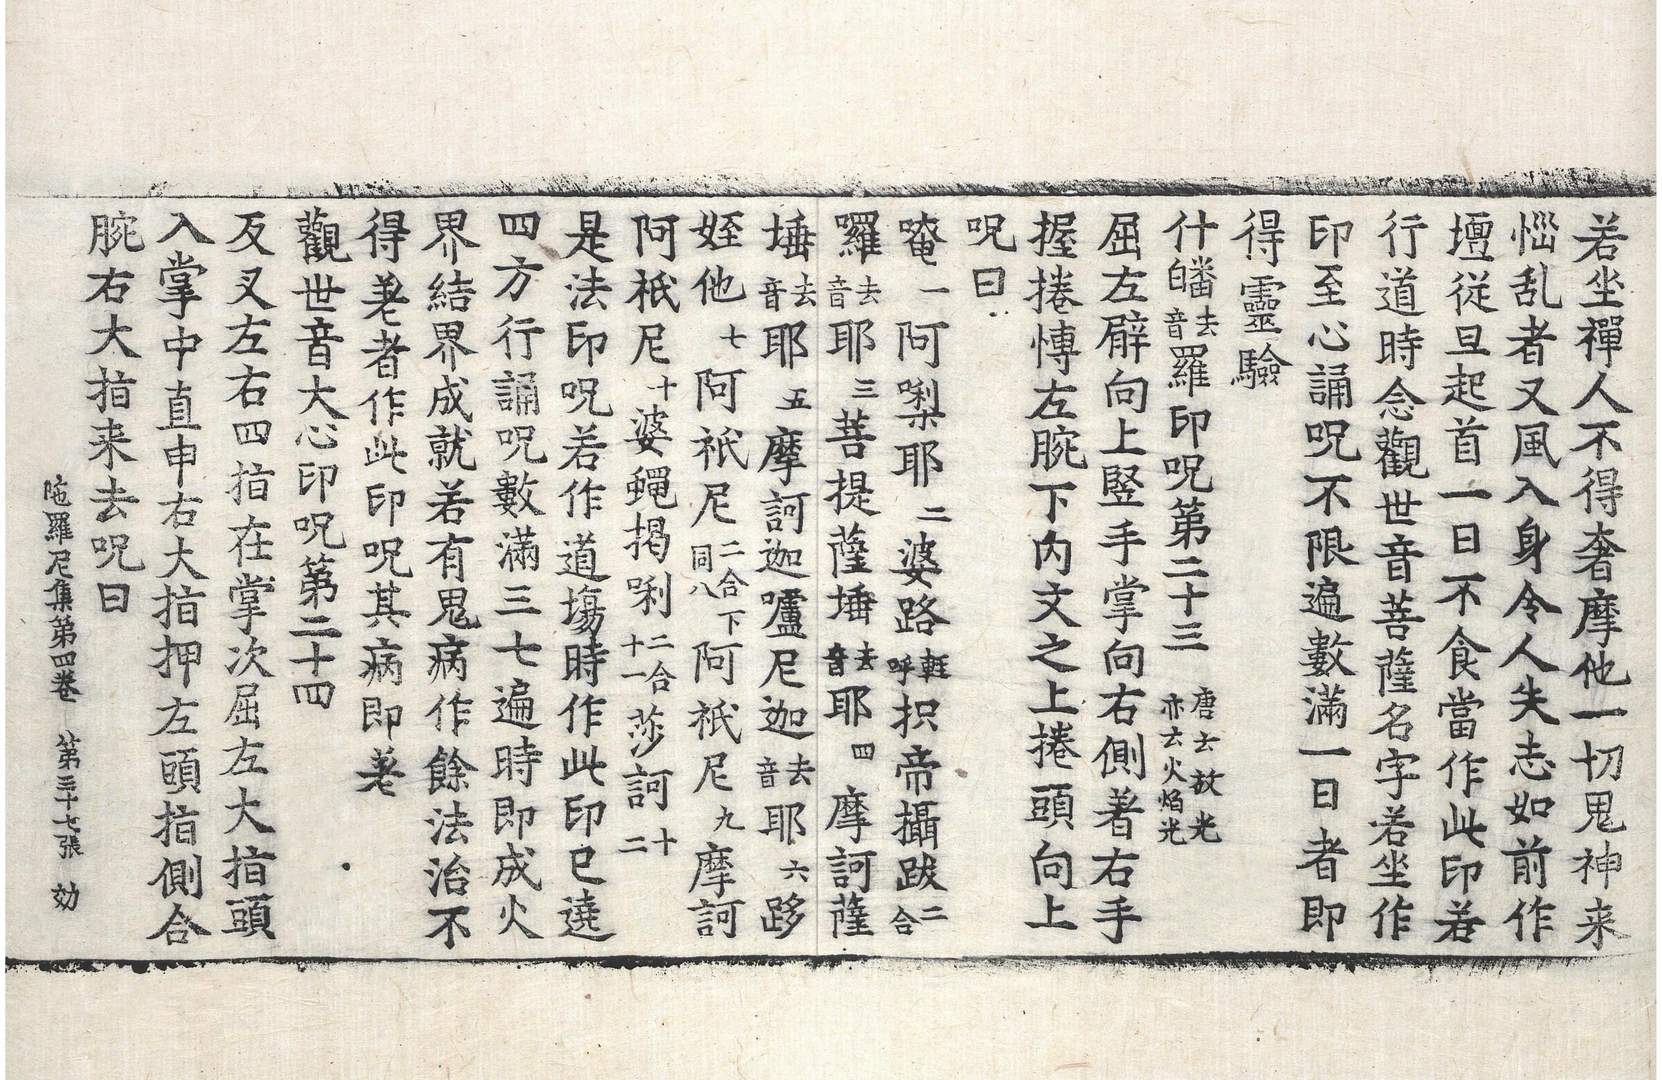 若坐禪人不得奢摩他一切鬼神来
惱乱者又風入身令人失志如前作
壇從旦起首一日不食當作此印若
行道時念觀世音菩薩名字若坐作
印至心誦呪不限遍數滿一日者即
得靈驗
什皤去音羅印呪第二十三唐云放光亦云火焰光
屈左臂向上竪手掌向右側著右手
握捲愽左腕下內文之上捲頭向上
呪曰
唵一阿㗚耶二婆路輕呼抧帝攝跋二合
羅去音耶三菩提薩埵去音耶四摩訶薩
埵去音耶五摩訶迦嚧尼迦去音耶六跢
姪他七阿衹尼二合下同八阿衹尼九摩訶
阿衹尼十婆蠅揭唎二合十一莎訶十二
是法印呪若作道場時作此印已遶
四方行誦呪數滿三七遍時即成火
界結界成就若有鬼病作餘法治不
得著者作此印呪其病即著
觀世音大心印呪第二十四
反叉左右四指在掌次屈左大指頭
入掌中直申右大指押左頭指側合
腕右大指来去呪曰
陁羅尼集第四卷 第三十七張 効